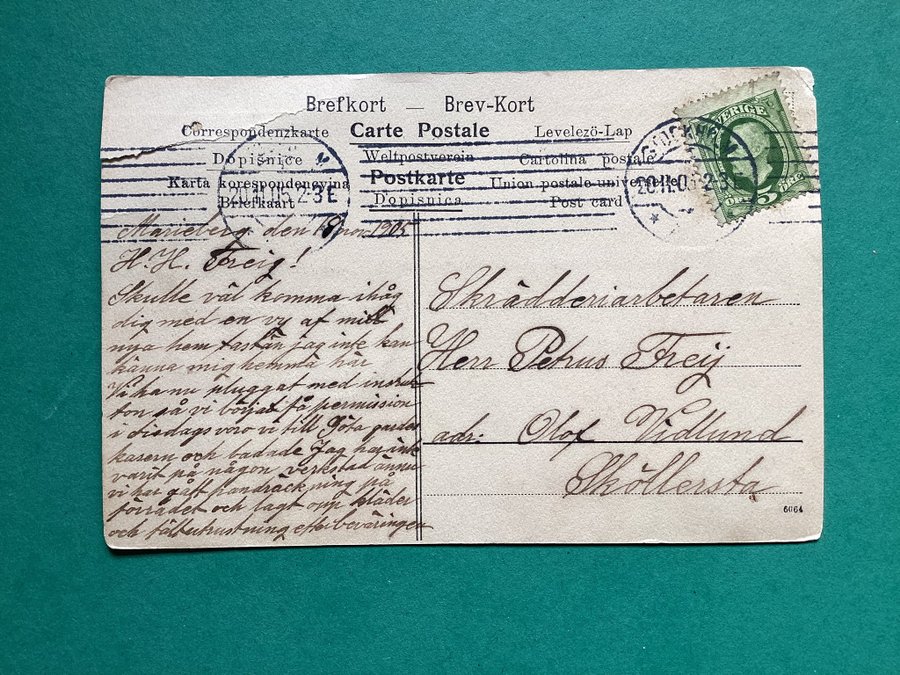 Brefkort — Brev-Kort
Correspondenzkarte Carte Postale Levelezö-Lap
Dopisnice Weltpostverein Cartolina postale
Karta korespondencyjna Postkarte Union postale universelle
Briefkaart Dopisnica Post card
SVERIGE
5
ÖRE
STOCKHOLM
20.11.05 2-3E
20.11.05 2-3E
Marieberg den 18 nov 1905
H. H. Freij!
Skulle väl komma ihåg
dig med en vy af mitt
nya hem fastän jag inte kan
känna mig hemma här
Vi ha nu pluggat med instruk
ton så vi börjat få permission
i tisdags voro vi till Göta gardes
kasern och badade Jag har inte
varit på någon verkstad ännu
vi har gått handräckning på
förrådet och lagt opp kläder
och fältutrustning efter beväringen
Skrädderiarbetaren
Herr Petrus Freij
adr: Olof Vidlund
Sköllersta
6064